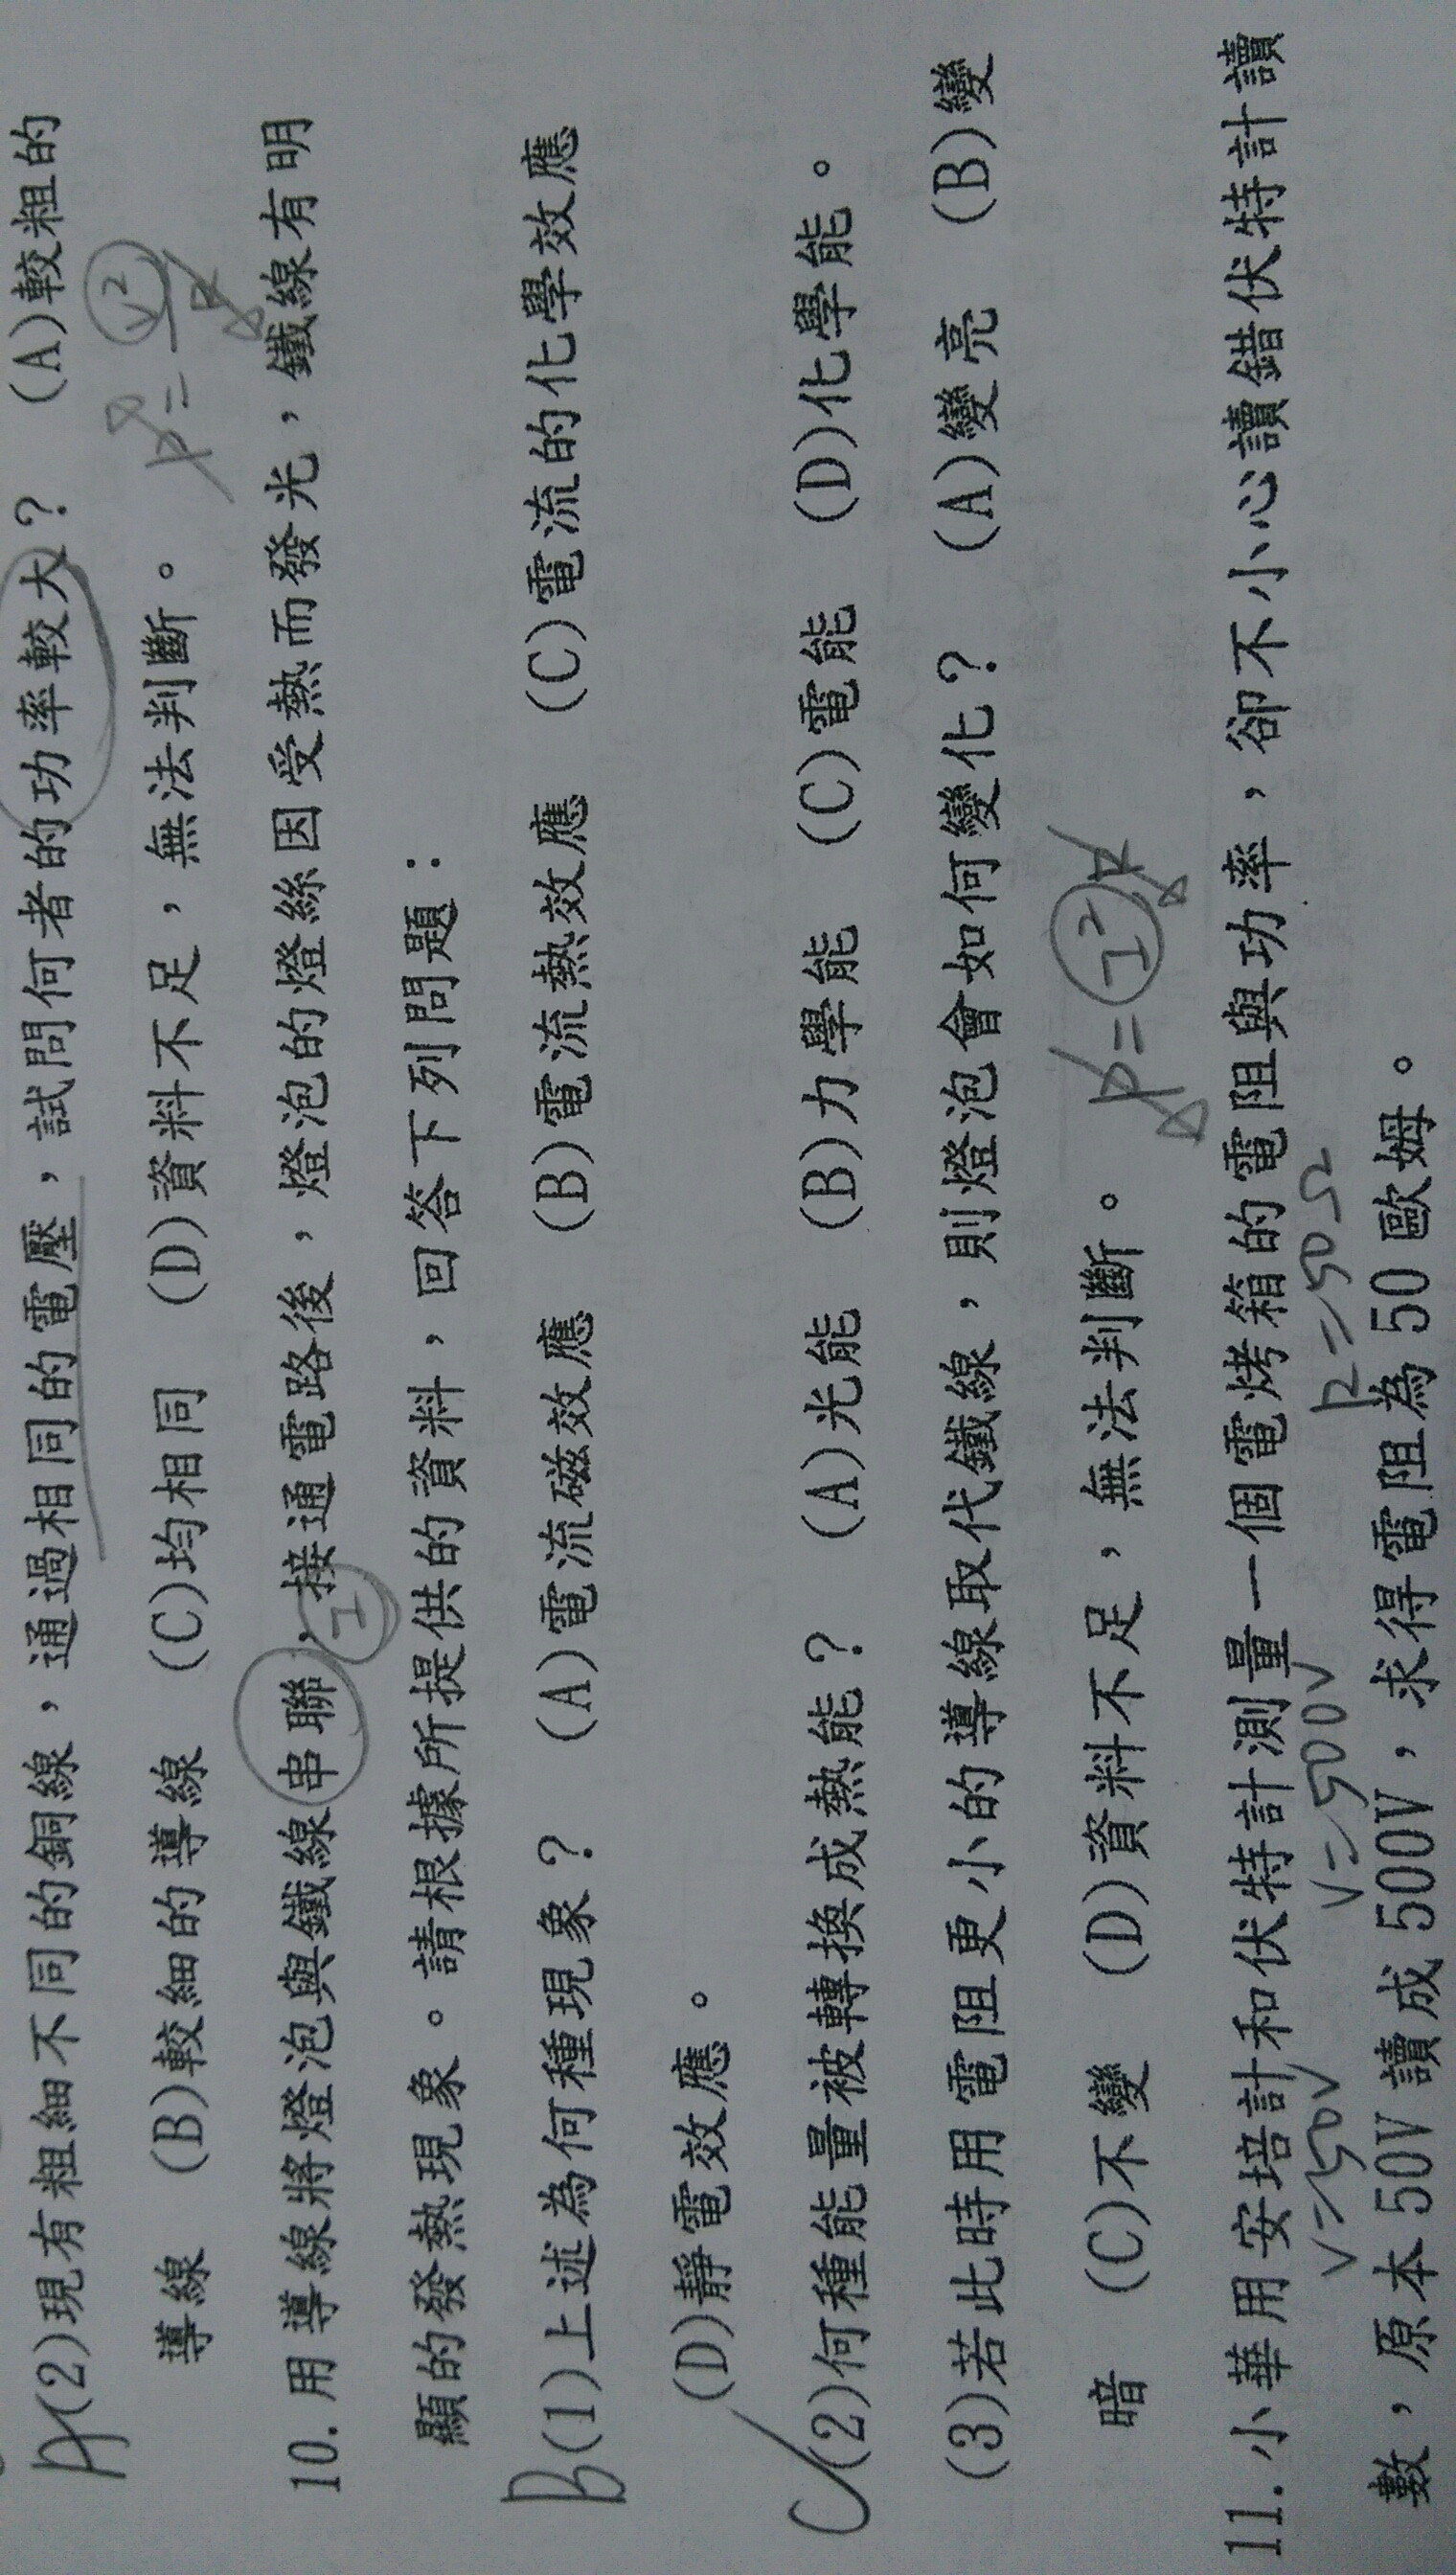 A(2)現有粗細不同的銅線，通過相同的電壓，試問何者的功率較大？ (A)較粗的
導線 (B)較細的導線 (C)均相同 (D)資料不足，無法判斷。
P=V²/R
10.用導線將燈泡與鐵線串聯，接通電路後，燈泡的燈絲因受熱而發光，鐵線有明
I
顯的發熱現象。請根據所提供的資料，回答下列問題：
B(1)上述為何種現象？ (A)電流磁效應 (B)電流熱效應 (C)電流的化學效應
(D)靜電效應。
C(2)何種能量被轉換成熱能？ (A)光能 (B)力學能 (C)電能 (D)化學能。
(3)若此時用電阻更小的導線取代鐵線，則燈泡會如何變化？ (A)變亮 (B)變
暗 (C)不變 (D)資料不足，無法判斷。
P=I²R
11.小華用安培計和伏特計測量一個電烤箱的電阻與功率，卻不小心讀錯伏特計讀
V=50V V=500V R=50Ω
數，原本50V讀成500V，求得電阻為50歐姆。